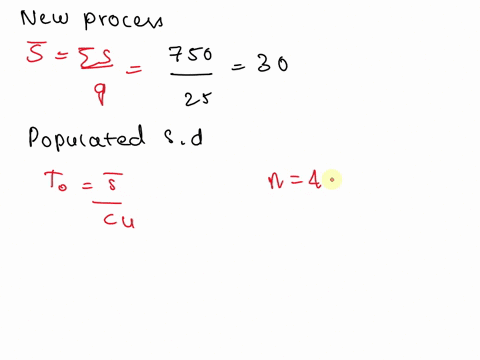 New process
S̅ = ΣS/q = 750/25 = 30
Populated s.d
To = s̅/cu
n = 4